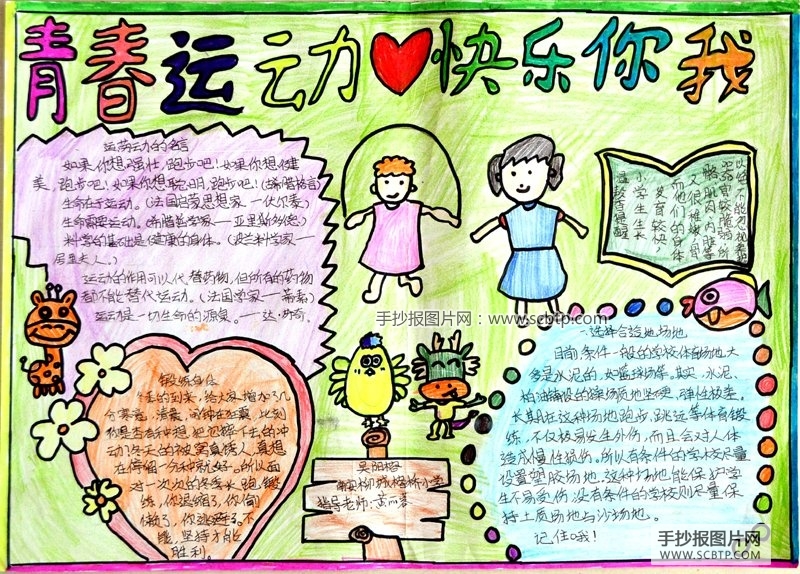 青春运动 快乐你我
运动的名言
如果你想强壮，跑步吧！如果你想健
美，跑步吧！如果你想聪明，跑步吧！(希腊格言)
生命在于运动。(法国启蒙思想家—伏尔泰)
生命需要运动。(希腊哲学家—亚里斯多德)
科学的基础是健康的身体。(波兰科学家—
居里夫人。)
运动的作用可以代替药物，但所有的药物
都不能替代运动。(法国 家—蒂素)
运动是一切生命的源泉。—达·芬奇。
小学生生长
发育较快
而他们的身体
又很稚嫩,骨
骼肌肉内脏等
手抄报图片网：www.scbtp.com
选择合适地场地
目前条件一般的学校体育场地大
多是水泥的,如篮球场等。其实,水泥、
柏油铺设的操场质地坚硬,弹性极差。
长期在这种场地跑步、跳远等体育锻
炼,不仅极易发生外伤,而且会对人体
造成慢性损伤。所以有条件的学校尽量
设置塑胶场地,这种场地能保护学
生不易受伤,没有条件的学校则尽量保
持土质场地与沙场地。
记住哦！
锻炼身体
冬天的到来,给大家增加了几
分寒意。清晨,
动！冬天的被窝真诱人,真想
在停留一分钟就好。所以面
对一次次的冬季长跑锻
炼,你退缩了,你偷
懒了,
能,坚持才能
胜利。
指导老师:
手抄报图片网
WWW.SCBTP.COM